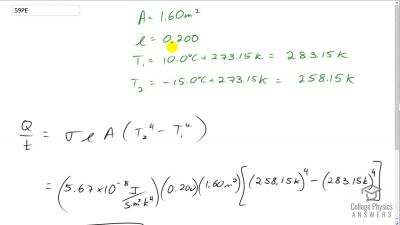 59PE
A = 1.60 m²
e = 0.200
T₁ = 10.0°C + 273.15 K = 283.15 K
T₂ = -15.0°C + 273.15 K = 258.15 K
Q/t = σ e A (T₂⁴ - T₁⁴)
= (5.67 × 10⁻⁸ J/s·m²·K⁴)(0.200)(1.60 m²)[(258.15 K)⁴ - (283.15 K)⁴]
College Physics
ANSWERS